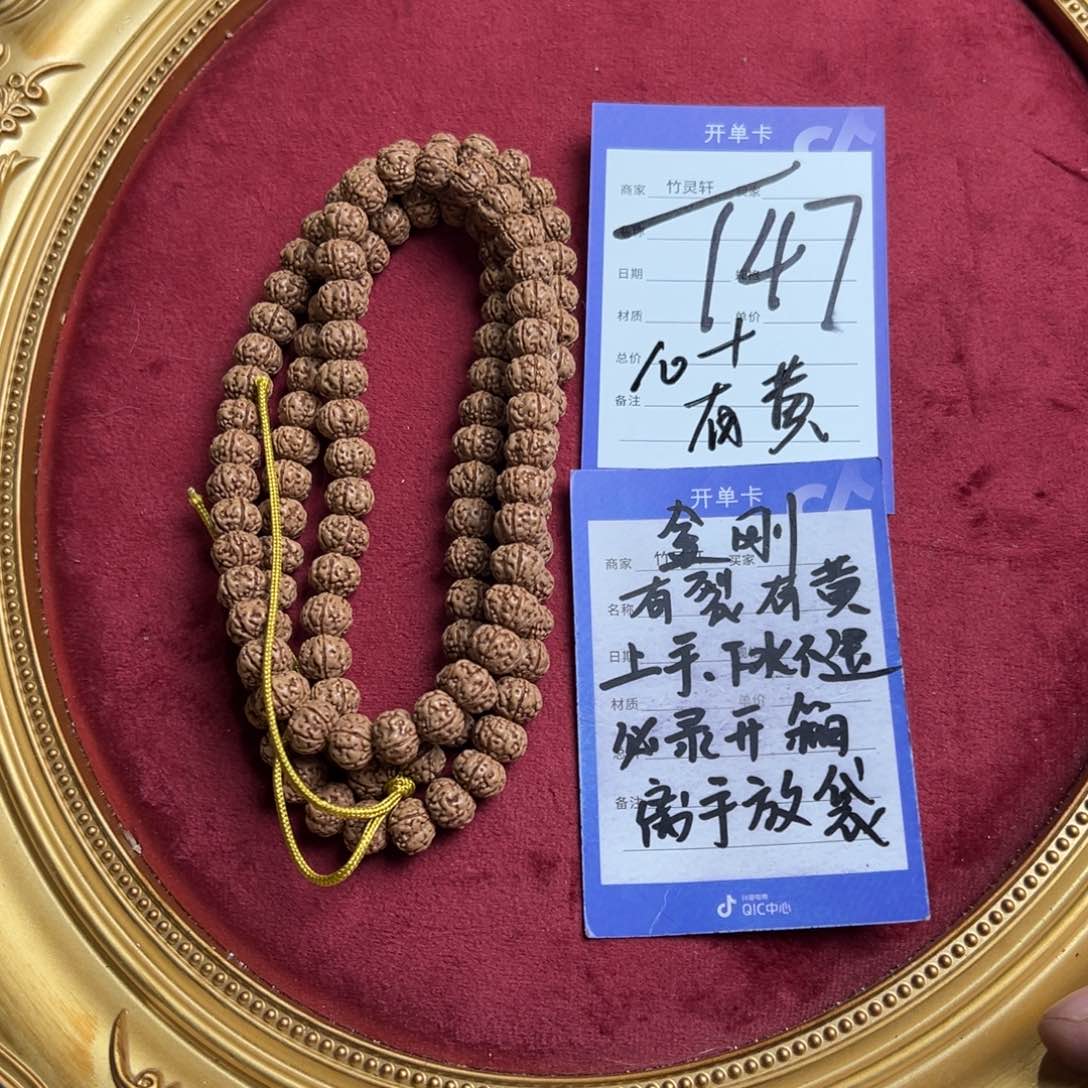 开单卡
商家 竹灵轩
147
日期
材质 单价
总价 10+
备注 有黄
开单卡
金刚
商家 买家
名称 有裂有黄
上手、下水不退
材质 单价
必录开箱
备注 离手放袋
抖音电商
QIC中心